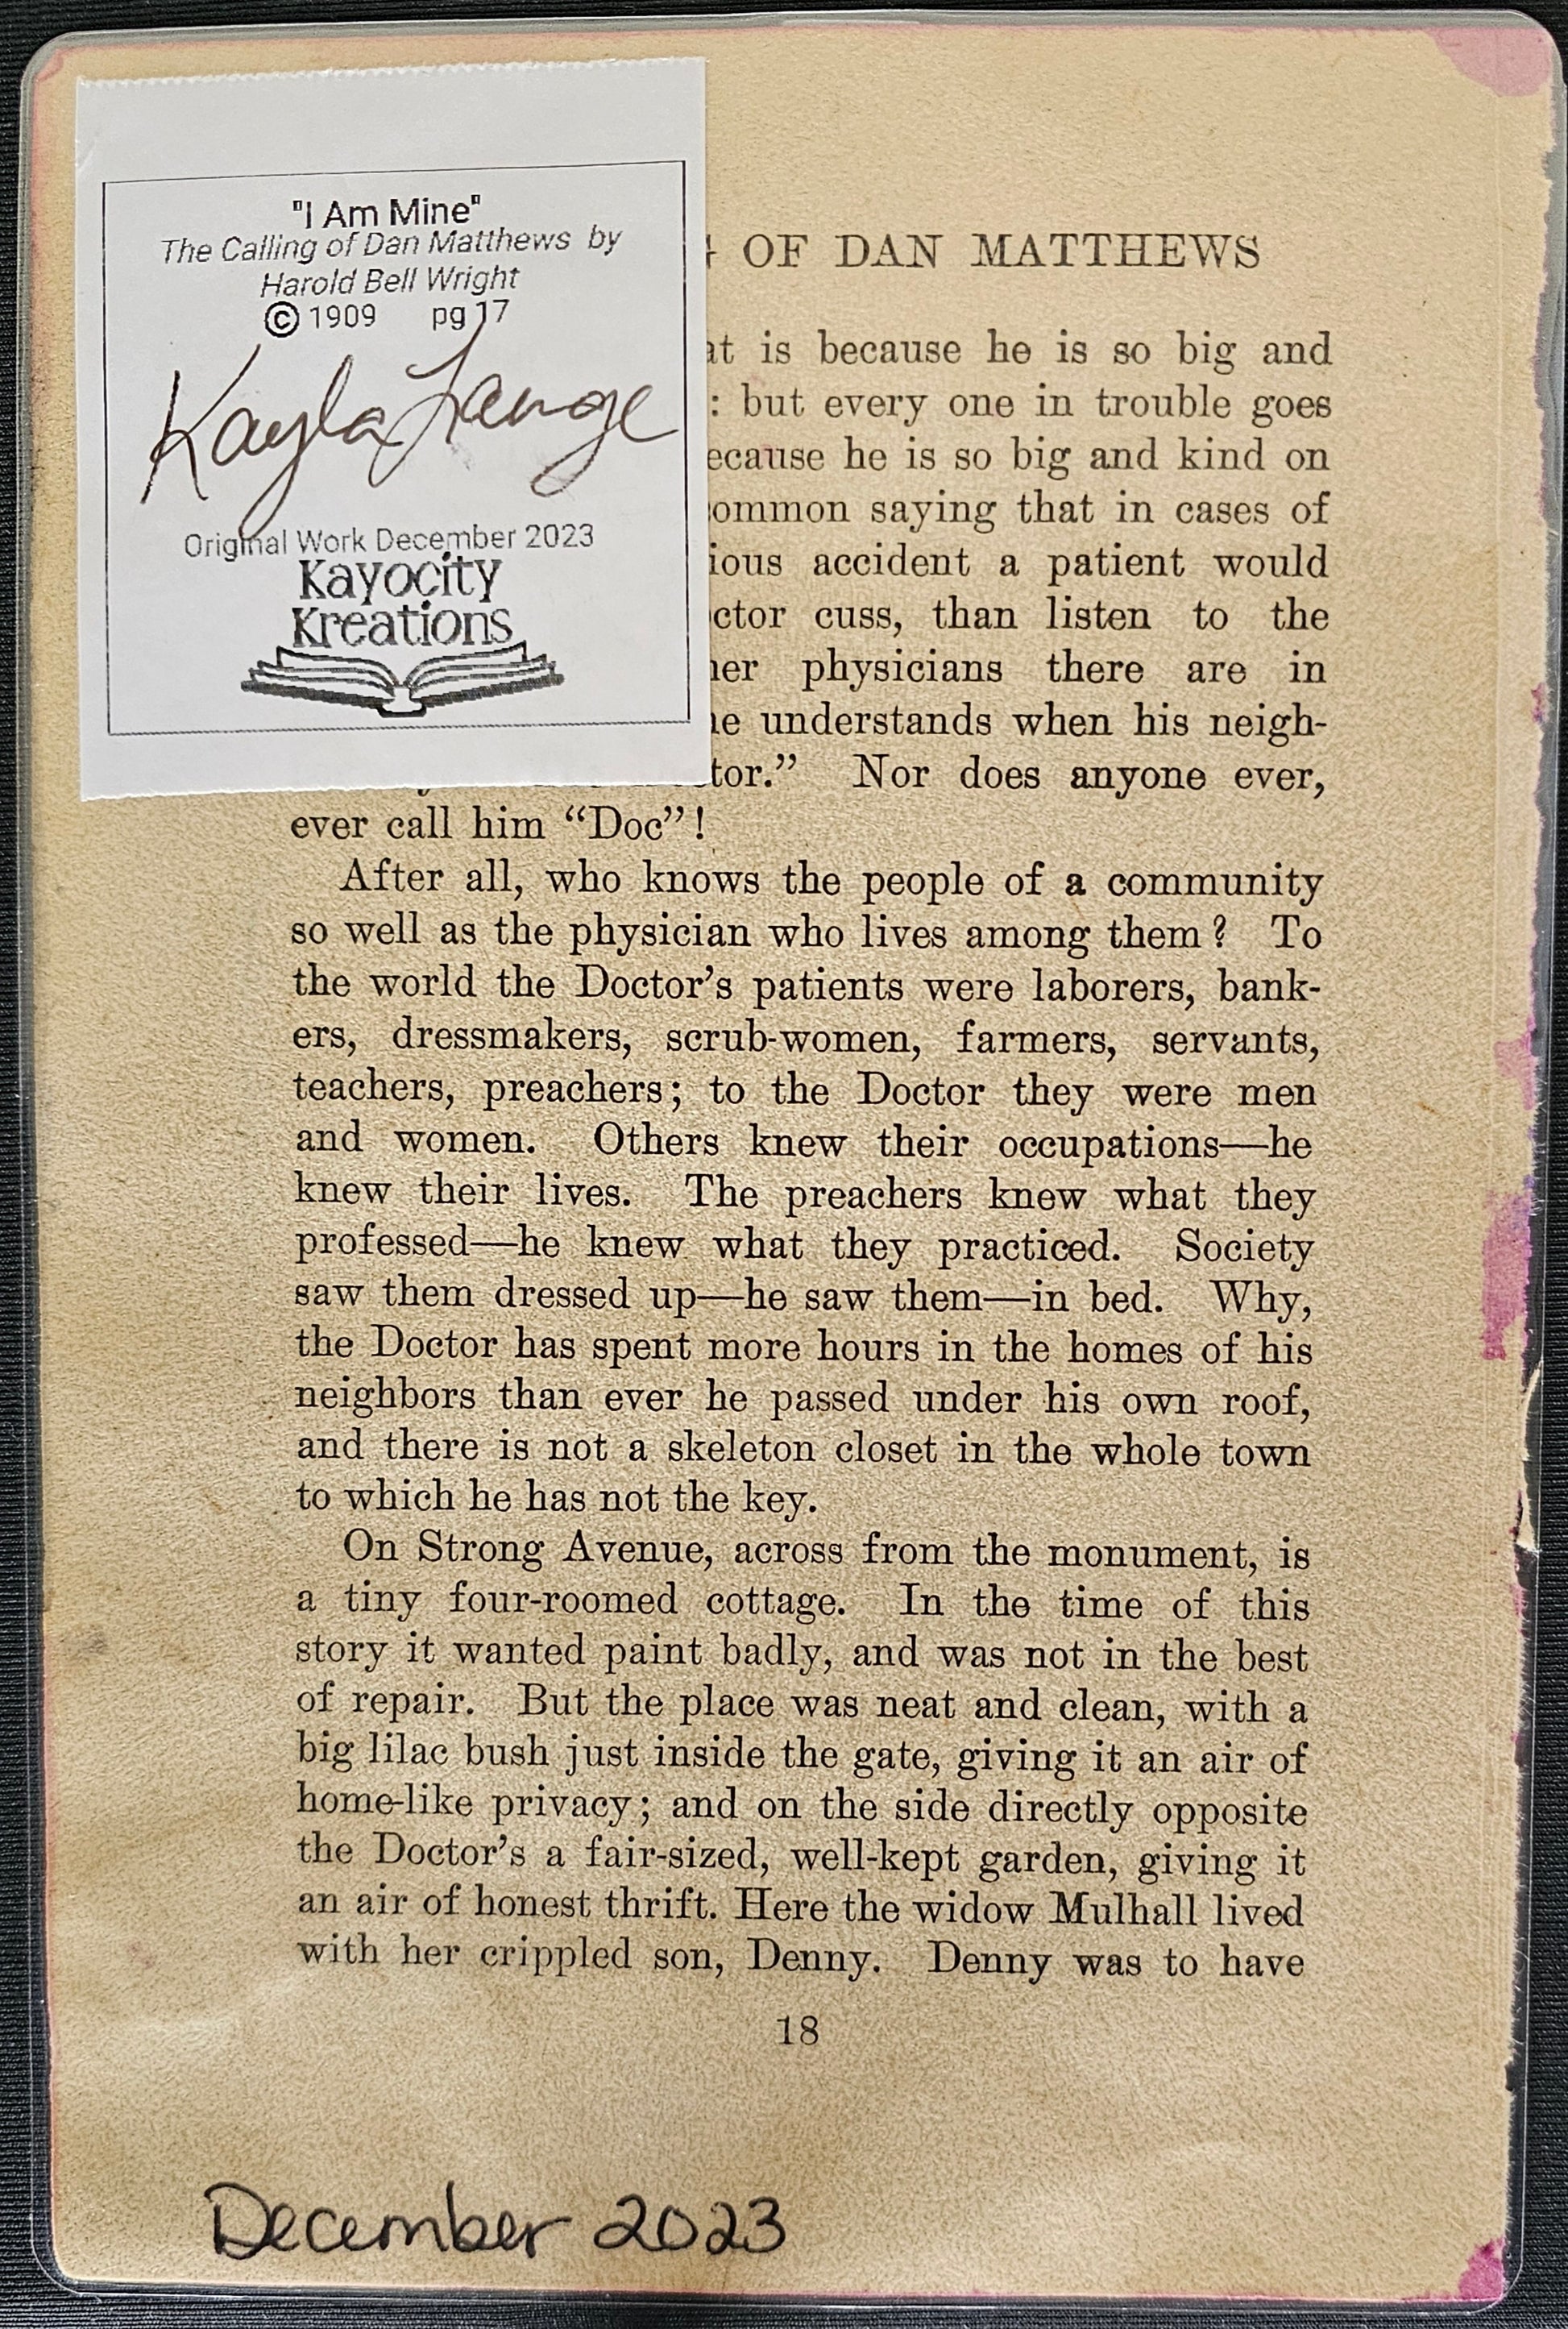 "I Am Mine"
The Calling of Dan Matthews by
Harold Bell Wright
© 1909 pg 17
Kayla Lange
Original Work December 2023
Kayocity
Kreations
OF DAN MATTHEWS
is because he is so big and
: but every one in trouble goes
ecause he is so big and kind on
ommon saying that in cases of
ious accident a patient would
ctor cuss, than listen to the
er physicians there are in
e understands when his neigh-
tor.” Nor does anyone ever,
ever call him “Doc”!
After all, who knows the people of a community
so well as the physician who lives among them? To
the world the Doctor’s patients were laborers, bank-
ers, dressmakers, scrub-women, farmers, servants,
teachers, preachers; to the Doctor they were men
and women. Others knew their occupations—he
knew their lives. The preachers knew what they
professed—he knew what they practiced. Society
saw them dressed up—he saw them—in bed. Why,
the Doctor has spent more hours in the homes of his
neighbors than ever he passed under his own roof,
and there is not a skeleton closet in the whole town
to which he has not the key.
On Strong Avenue, across from the monument, is
a tiny four-roomed cottage. In the time of this
story it wanted paint badly, and was not in the best
of repair. But the place was neat and clean, with a
big lilac bush just inside the gate, giving it an air of
home-like privacy; and on the side directly opposite
the Doctor’s a fair-sized, well-kept garden, giving it
an air of honest thrift. Here the widow Mulhall lived
with her crippled son, Denny. Denny was to have
18
December 2023